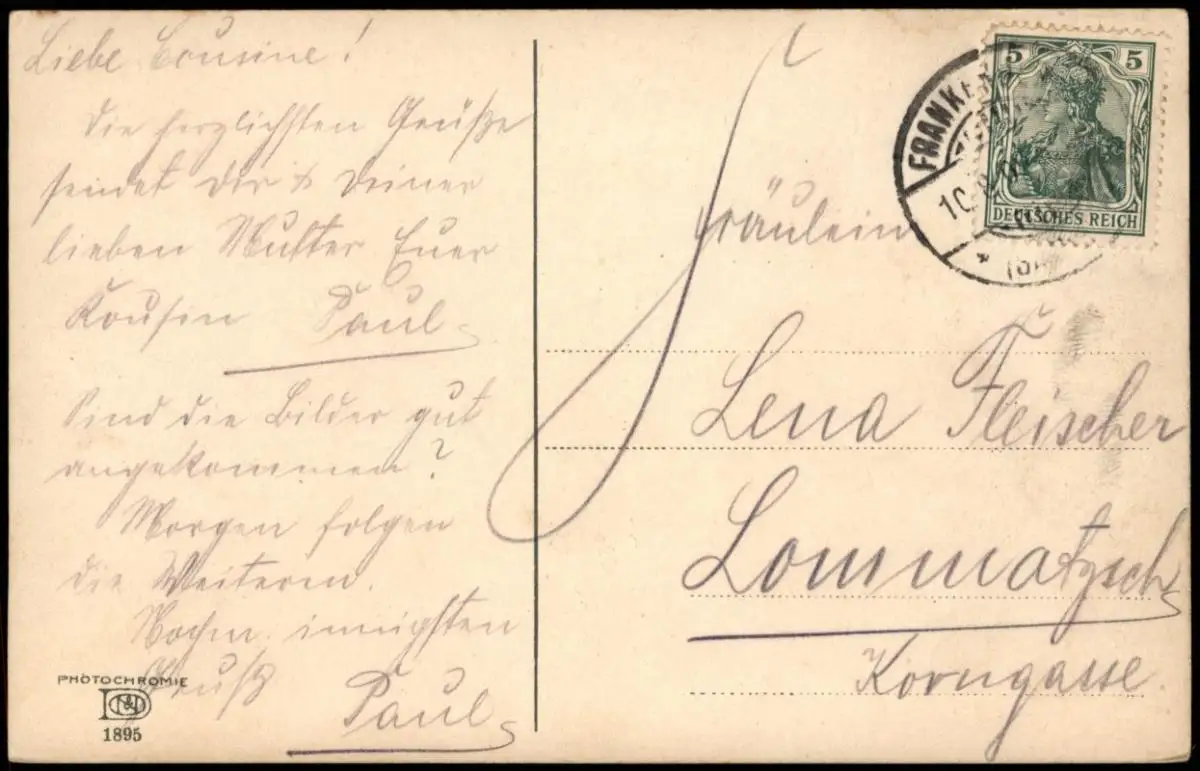 Liebe Cousine!
die herzlichsten Grüße
sendet Dir & Deiner
lieben Mutter Euer
Kousin Paul
Sind die Bilder gut
angekommen?
Morgen folgen
die Weiteren.
Nochm. innigsten
Gruß
Paul
PHOTOCHROMIE
1895
5 5
DEUTSCHES REICH
FRANKEN
10.
Fräulein
Lena Fleischer
Lommatzsch
Korngasse.